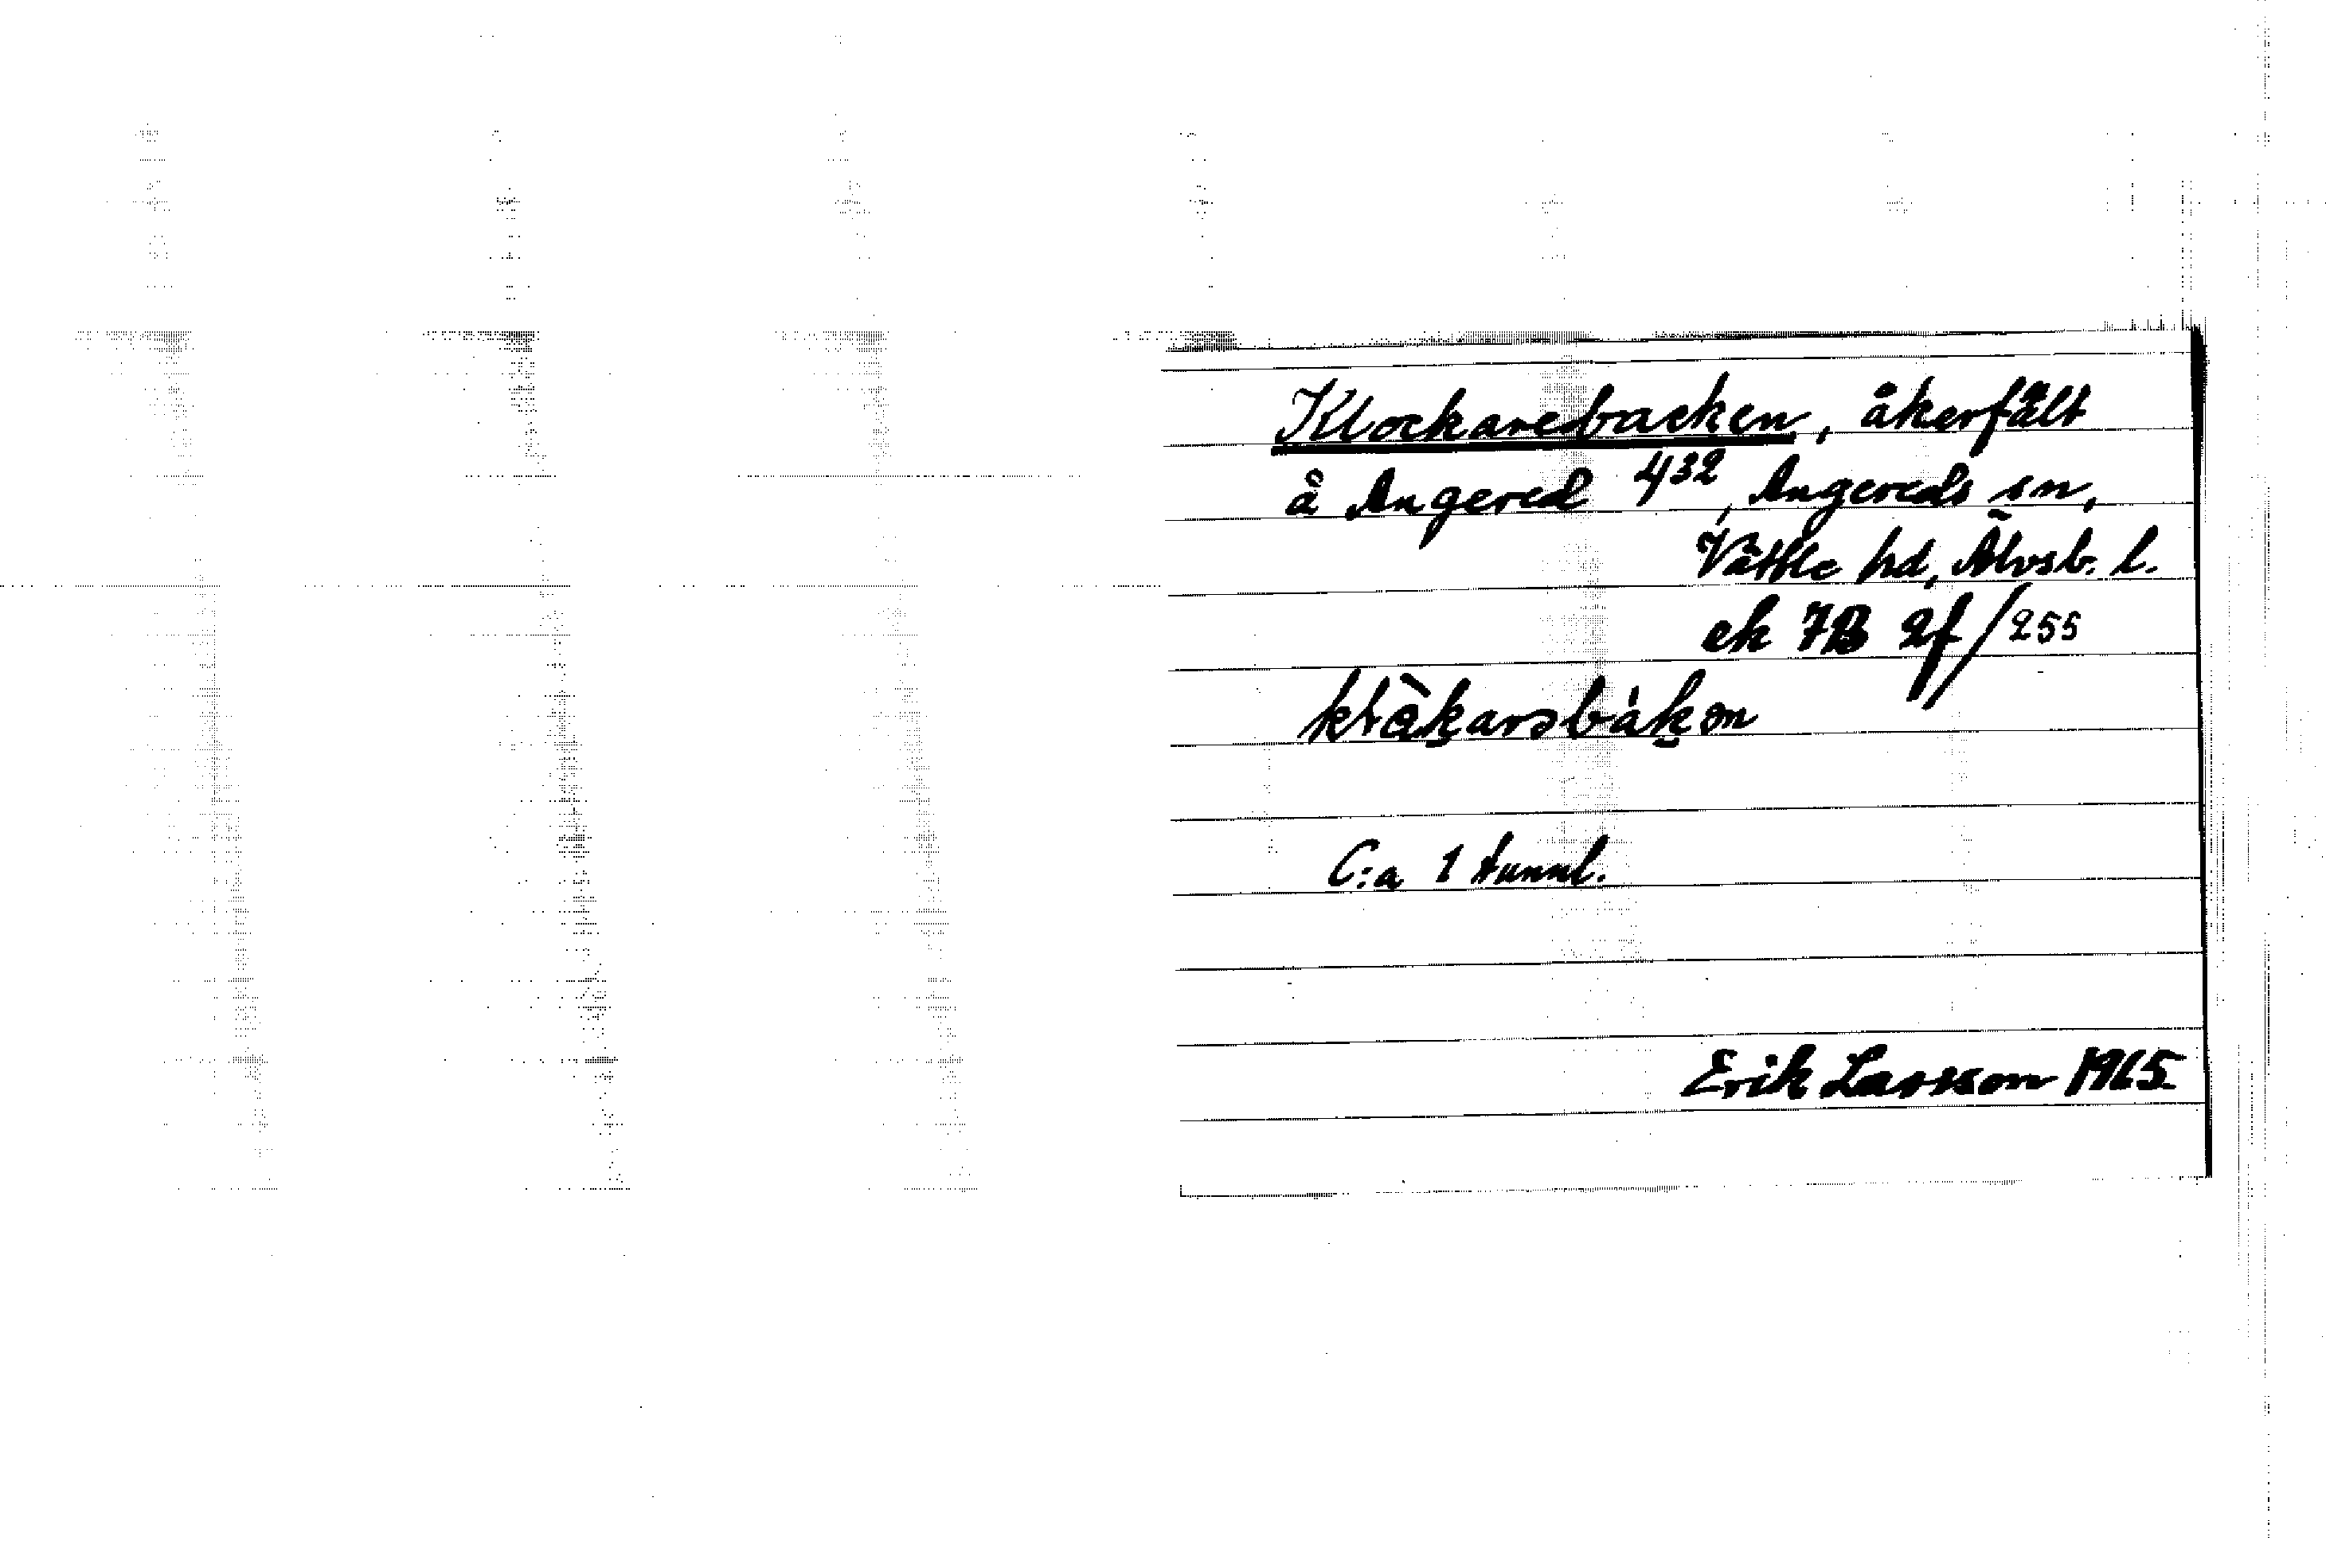 Klockarebacken, åkerfält
å Angered 4³², Angereds sn,
Vättle hd, Älvsb. l.
ek 7B 2f/255
klàk̬arəbàk̬ən
C:a 1 tunnl.
Erik Larsson 1965